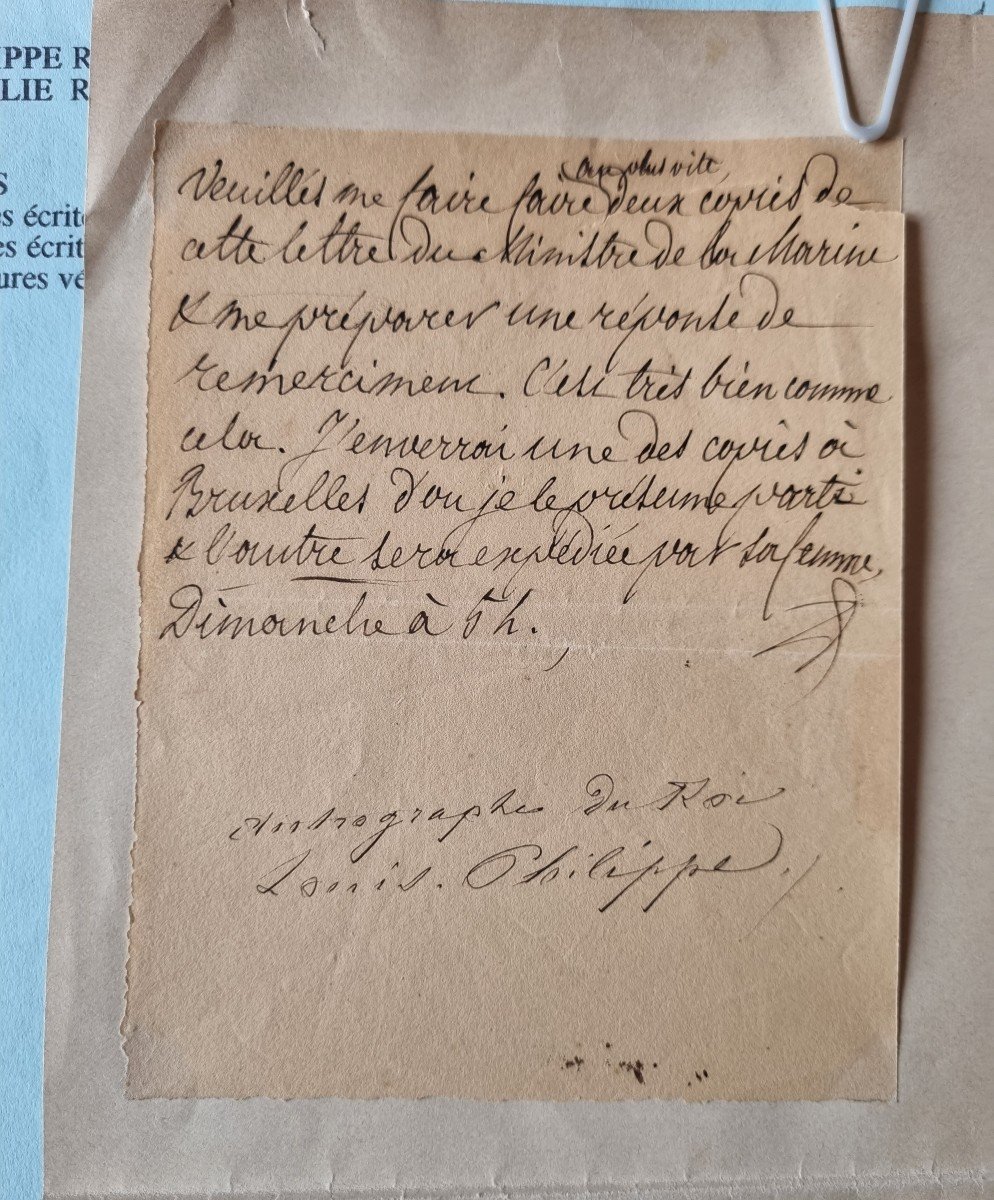 IPPE R
LIE R
S
es écrit
es écrit
ures vé
au plus vite,
Veuillés me faire faire deux copies de
cette lettre du Ministre de la Marine
& me préparer une réponse de
remerciment. C'est très bien comme
cela. J'enverrai une des copies à
Bruxelles d'ou je le présume parti
& l'autre sera expédiée par sa femme,
Dimanche à 5 h.
Autographe du Roi
Louis. Philippe.